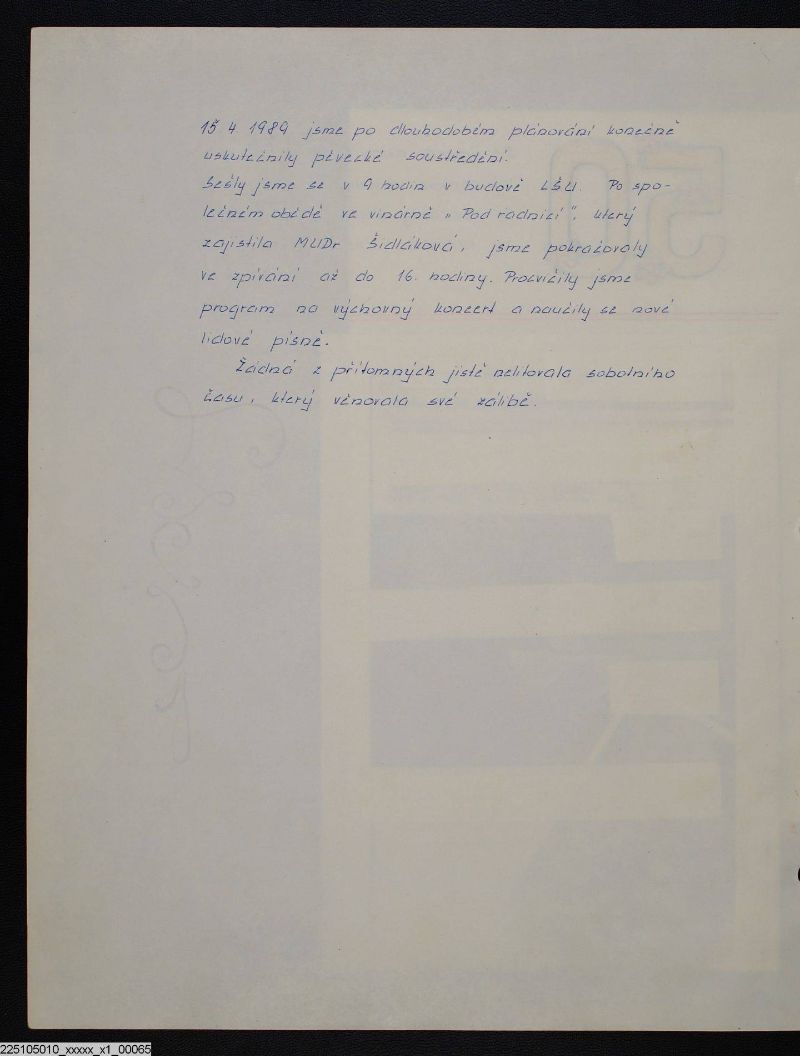 15 4 1989 jsme po dlouhodobém plánování konečně
uskutečnily pěvecké soustředění.
Sešly jsme se v 9 hodin v budově LŠU. Po spo-
lečném obědě ve vinárně „Pod radnicí", který
zajistila MUDr Šidláková, jsme pokračovaly
ve zpívání až do 16. hodiny. Procvičily jsme
program na výchovný koncert a naučily se nové
lidové písně.
Žádná z přítomných jistě nelitovala sobotního
času, který věnovala své zálibě.
225105010_xxxxx_x1_00065